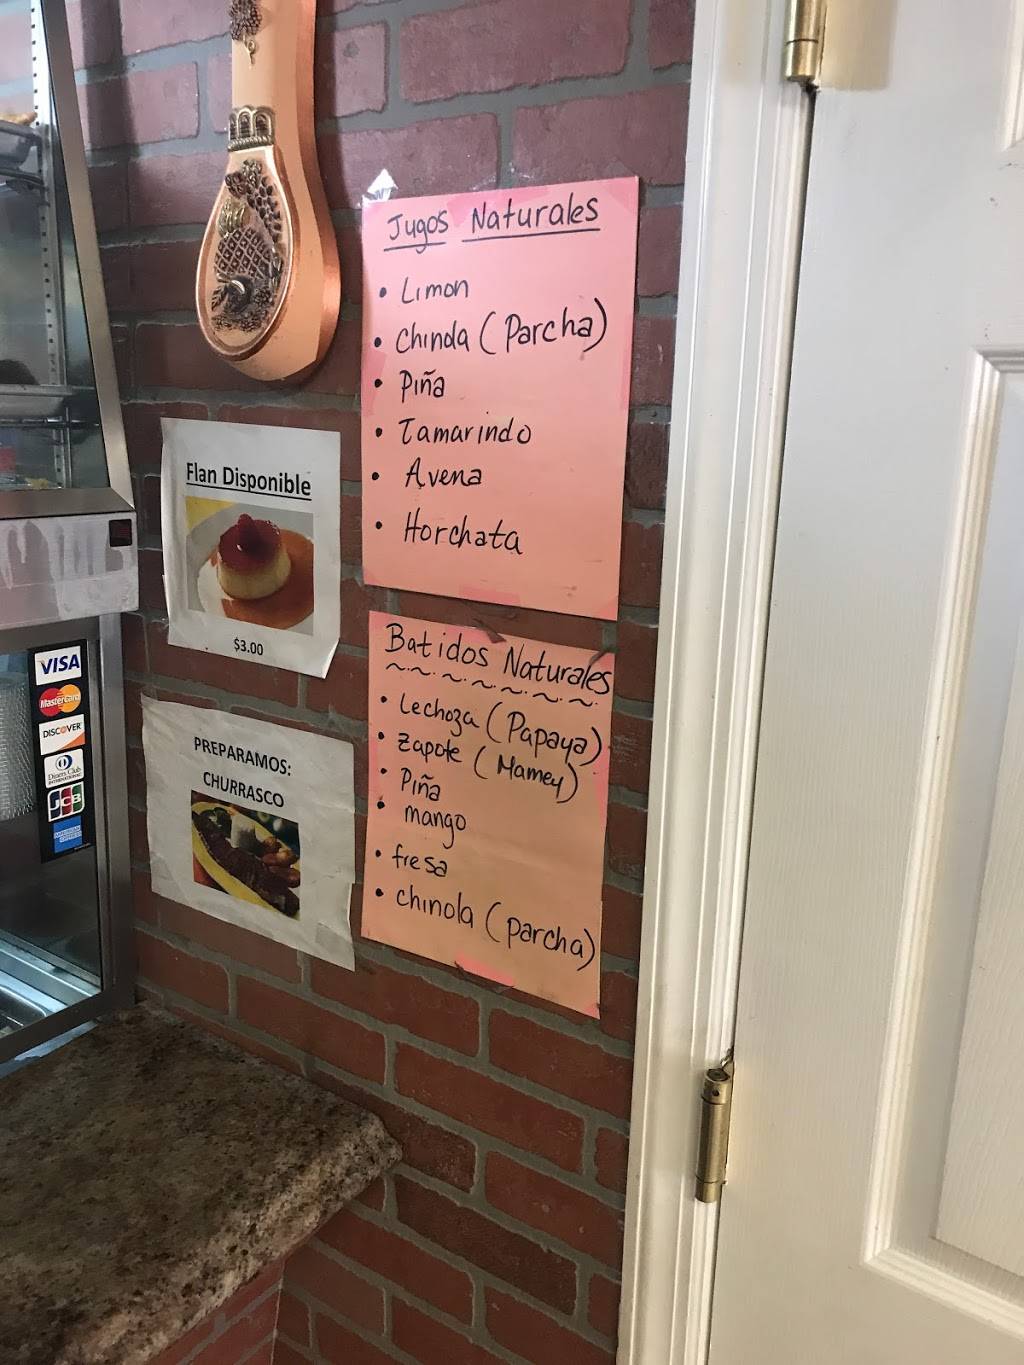 Jugos Naturales
• Limon
• Chinola (Parcha)
• Piña
• Tamarindo
• Avena
• Horchata
Flan Disponible
$3.00
Batidos Naturales
• Lechoza (Papaya)
• Zapote (Mamey)
• Piña
• mango
• fresa
• chinola (parcha)
PREPARAMOS:
CHURRASCO
VISA
MasterCard
DISCOVER
Diners Club
INTERNATIONAL
JCB
AMERICAN
EXPRESS